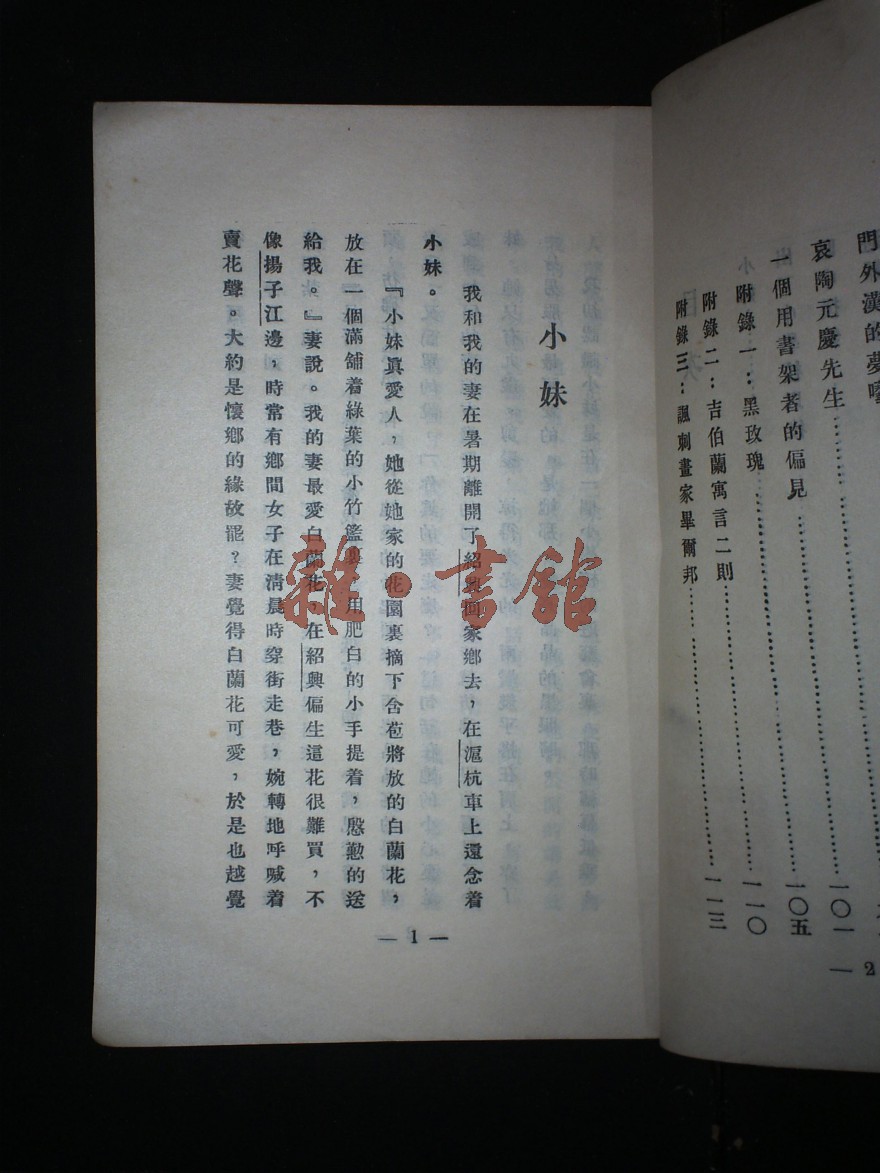 門外漢的夢囈
哀陶元慶先生………一〇一
一個用書架著的偏見………一〇五
附錄一：黑玫瑰………一一〇
附錄二：吉伯蘭寓言二則
附錄三：諷刺畫家畢爾邦………一一三
— 2
小妹
我和我的妻在暑期離開了紹興回家鄉去，在滬杭車上還念着
小妹。
『小妹眞愛人，她從她家的花園裏摘下含苞將放的白蘭花，
放在一個滿舖着綠葉的小竹籃裏，用肥白的小手提着，慇懃的送
給我。』妻說。我的妻最愛白蘭花，在紹興偏生這花很難買，不
像揚子江邊，時常有鄉間女子在清晨時穿街走巷，婉轉地呼喊着
賣花聲。大約是懷鄉的緣故罷？妻覺得白蘭花可愛，於是也越覺
— 1 —
雜·書館